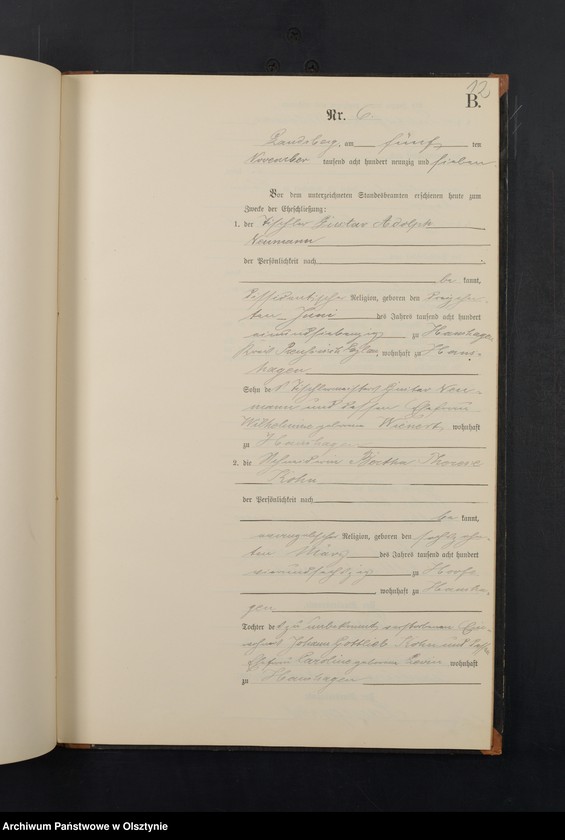 12
B.
Nr. 6
Landsberg, am fünf ten
November tausend acht hundert neunzig und sieben
Vor dem unterzeichneten Standesbeamten erschienen heute zum
Zwecke der Eheschließung:
1. der Tischler Gustav Adolph
Neumann
der Persönlichkeit nach
be kannt,
Religion, geboren den
ten Juni des Jahres tausend acht hundert
einundsiebenzig zu Hanshagen
Kreis wohnhaft zu Hans-
hagen
Sohn des Tischlermeisters Gustav Neu-
mann und dessen Ehefrau
Wilhelmine geborene wohnhaft
zu Hanshagen
2. die Bertha
Kohn
der Persönlichkeit nach
be kannt,
evangelischer Religion, geboren den sechszehn-
ten März des Jahres tausend acht hundert
vierundsechszig zu
wohnhaft zu Hansha-
gen
Tochter des zu verstorbenen
Johann Gottlieb Kohn und dessen
Ehefrau Caroline geborene wohnhaft
zu Hanshagen
Archiwum Państwowe w Olsztynie